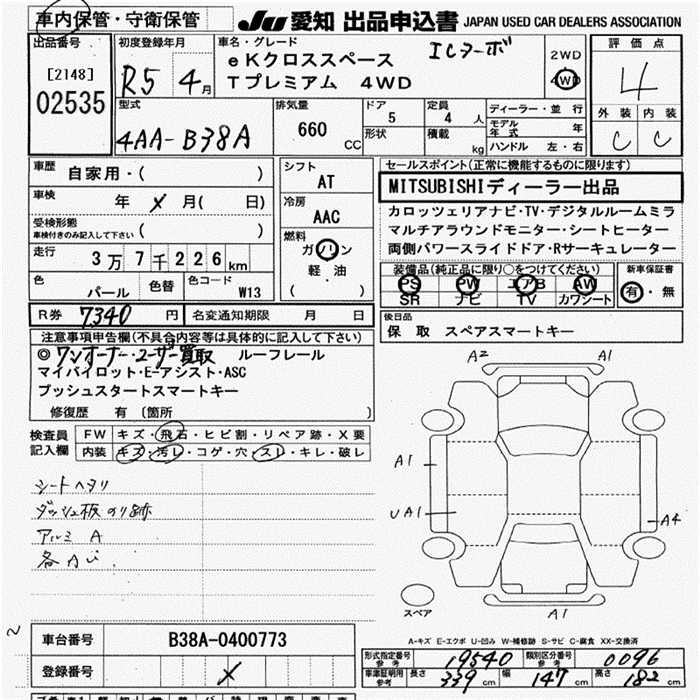 車内保管・守衛保管
JU 愛知 出品申込書 JAPAN USED CAR DEALERS ASSOCIATION
出品番号
[2148]
02535
初度登録年月
R5 4月
車名・グレード
ICターボ
eKクロススペース
Tプレミアム 4WD
2WD
4WD
評価点
4
外装 内装
C C
型式
4AA-B38A
排気量
660 CC
ドア
5
形状
定員
4 人
積載 kg
ディーラー・並 行
モデル年式 年
ハンドル 左・右
車歴
自家用・( )
車検
年 月( 日)
受検形態
車検付きのみ記入して下さい ( )
走行
3万7千226km
シフト
AT
冷房
AAC
燃料
ガソリン
軽・油
( )
色
パール
色替
色コード
W13
R券 7340 円
名変通知期限 月 日
セールスポイント(正常に機能するものに限ります)
MITSUBISHIディーラー出品
カロッツェリアナビ・TV・デジタルルームミラ
マルチアラウンドモニター・シートヒーター
両側パワースライドドア・Rサーキュレーター
装備品(純正品に限り○をつけてください)
PS PW エアB AW
SR ナビ TV カワシート
新車保証書
有・無
後日品
保 取 スペアスマートキー
注意事項申告欄(不具合内容等は具体的に記入して下さい)
◎ワンオーナー・ユーザー買取 ルーフレール
マイパイロット・E-アシスト・ASC
プッシュスタートスマートキー
修復歴 有(箇所 )
検査員
記入欄
FW キズ・飛石・ヒビ割・リペア跡・X要
内装 キズ・汚レ・コゲ・穴・スレ・キレ・破レ
シートヘタリ
ダッシュ板のり跡
アルミ A
各AU
A2 A1
A1
UA1
A4
A1
スペア
A-キズ E-エクボ U-凹み W-補修跡 S-サビ C-腐食 XX-交換済
車台番号
B38A-0400773
登録番号
型式指定番号 参考 19540
類別区分番号 参考 0096
車庫証明用 参考 長さ 339 cm 幅 147 cm 高さ 182 cm